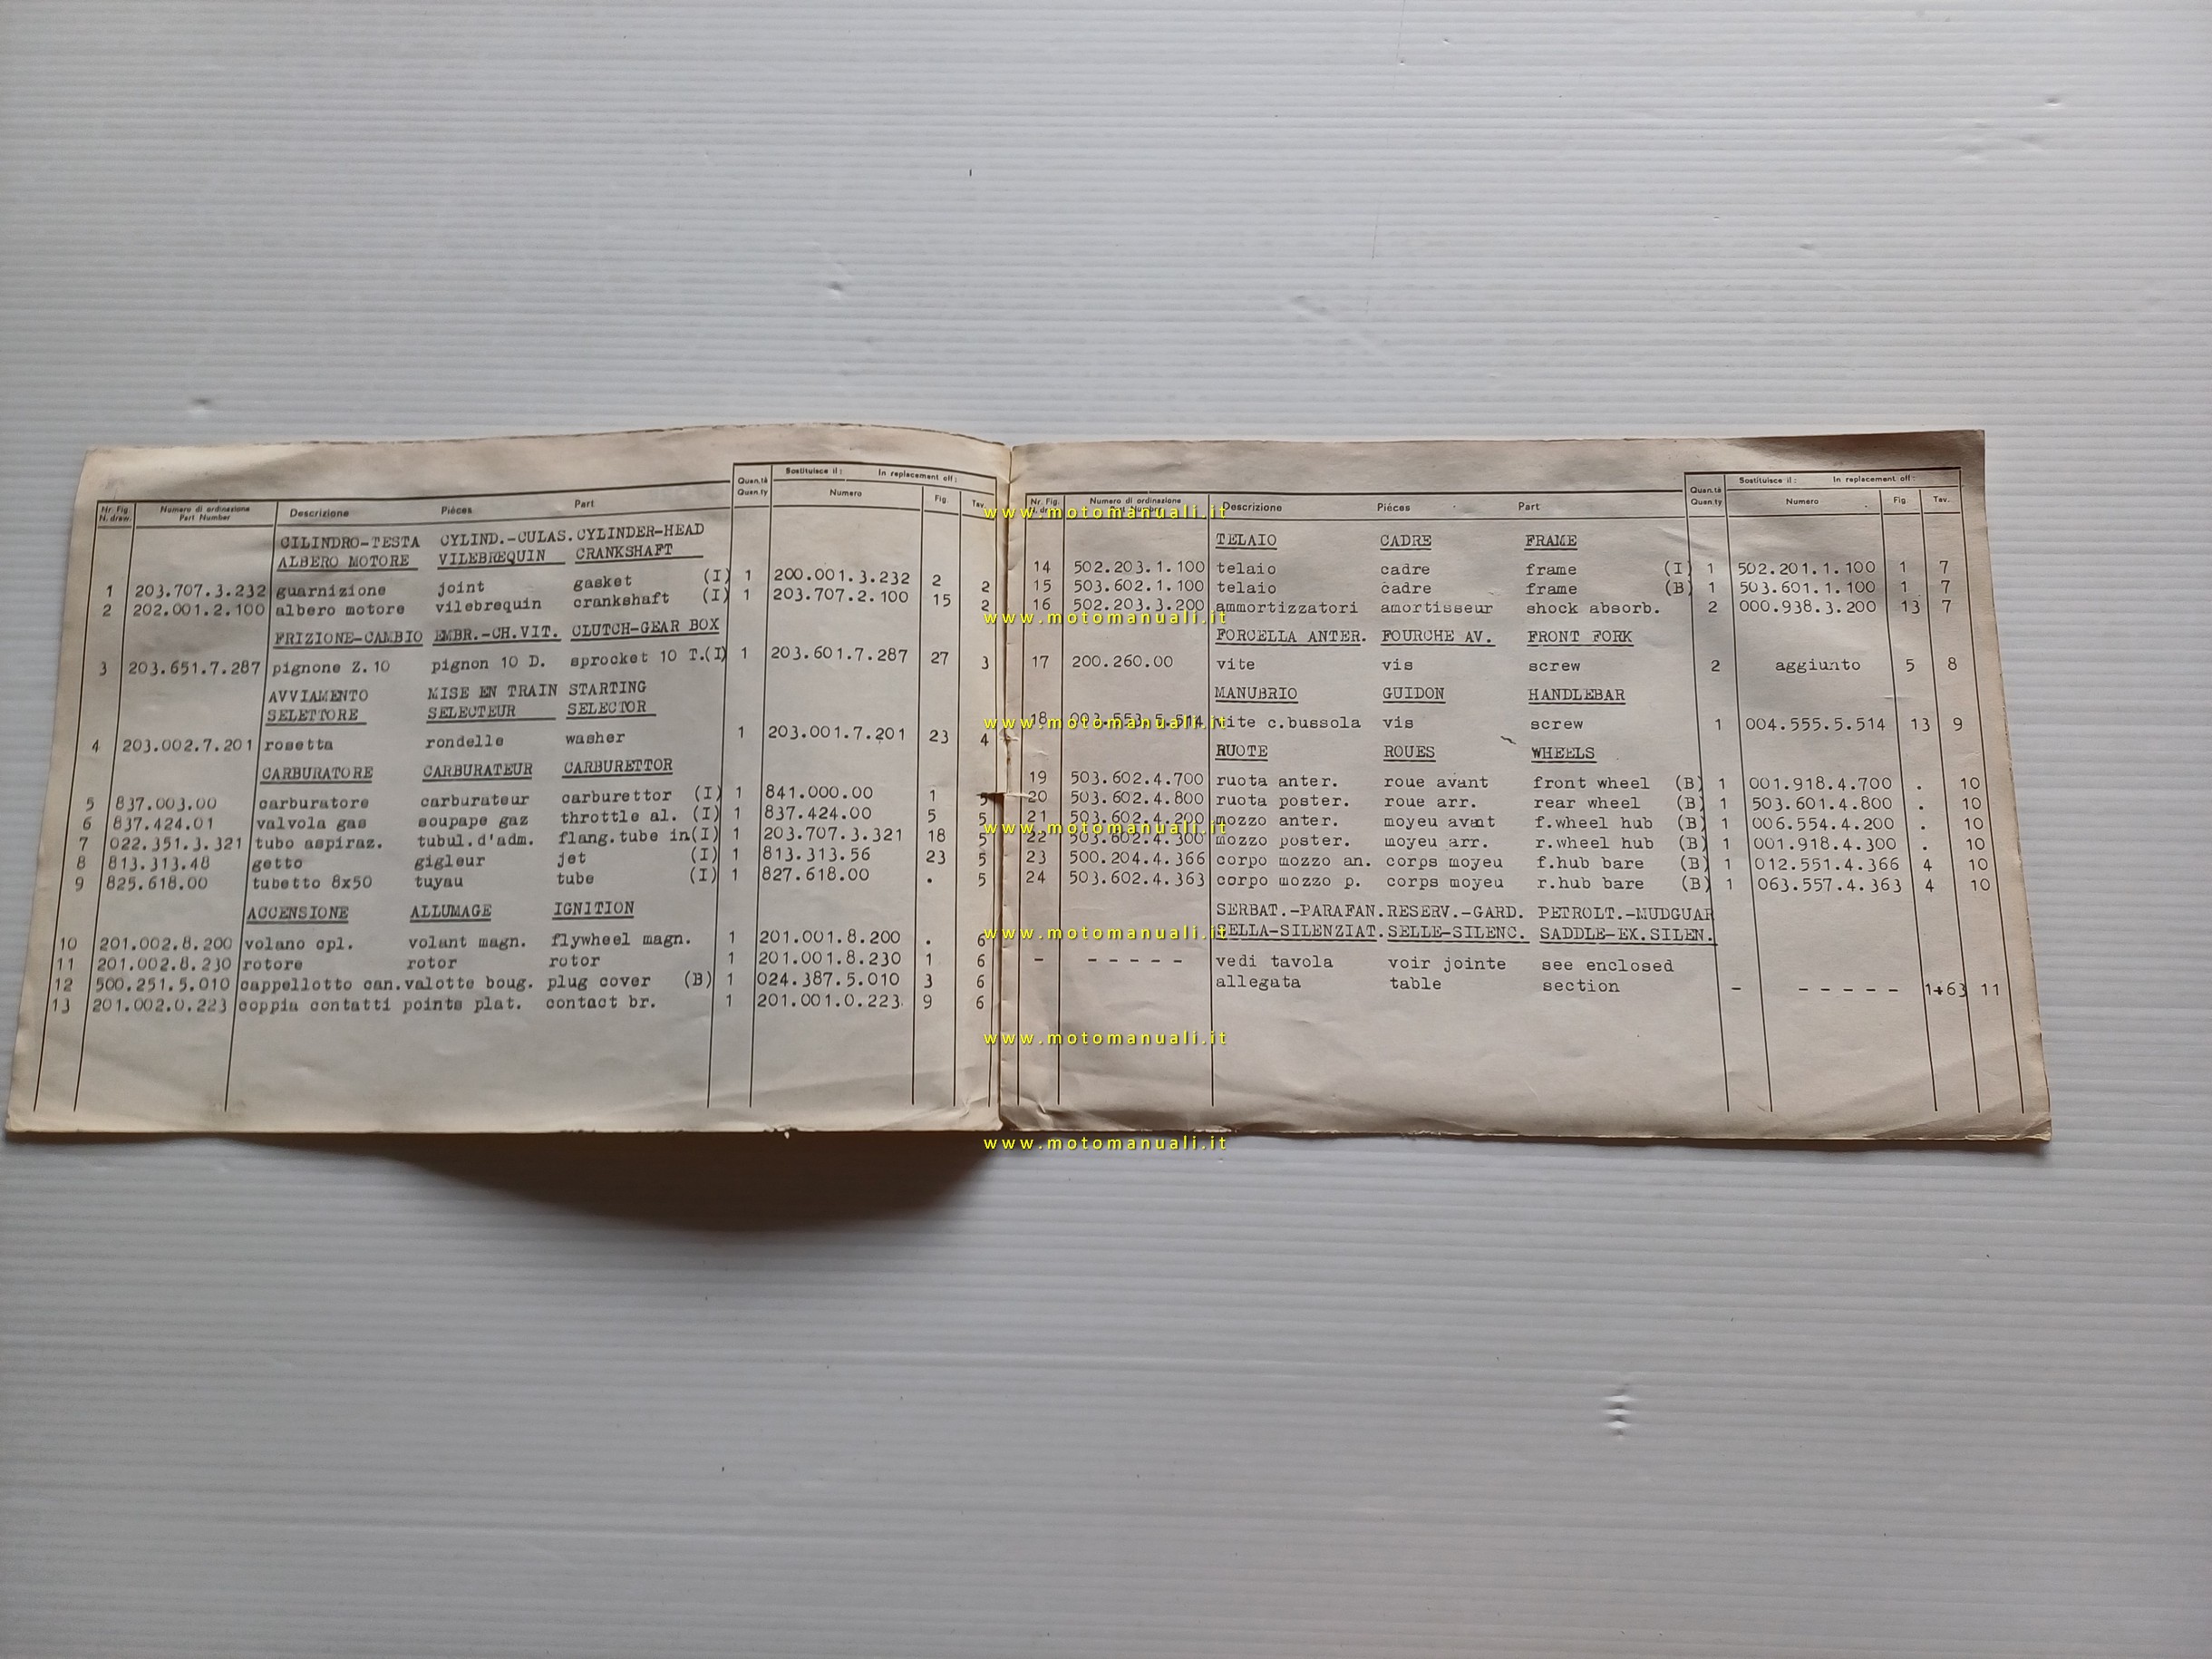 Quan.tà Sostituisce il: In replacement off:
Nr. Fig. Numero di ordinazione Descrizione Piéces Part Quan.ty Numero Fig. Tav.
N. draw. Part Number
CILINDRO-TESTA CYLIND.-CULAS. CYLINDER-HEAD
ALBERO MOTORE VILEBREQUIN CRANKSHAFT
1 203.707.3.232 guarnizione joint gasket (I) 1 200.001.3.232 2 2
2 202.001.2.100 albero motore vilebrequin crankshaft (I) 1 203.707.2.100 15 2
FRIZIONE-CAMBIO EMBR.-CH.VIT. CLUTCH-GEAR BOX
3 203.651.7.287 pignone Z.10 pignon 10 D. sprocket 10 T.(I) 1 203.601.7.287 27 3
AVVIAMENTO MISE EN TRAIN STARTING
SELETTORE SELECTEUR SELECTOR
4 203.002.7.201 rosetta rondelle washer 1 203.001.7.201 23 4
CARBURATORE CARBURATEUR CARBURETTOR
5 837.003.00 carburatore carburateur carburettor (I) 1 841.000.00 1 5
6 837.424.01 valvola gas soupape gaz throttle al. (I) 1 837.424.00 5 5
7 022.351.3.321 tubo aspiraz. tubul.d'adm. flang.tube in(I) 1 203.707.3.321 18 5
8 813.313.48 getto gigleur jet (I) 1 813.313.56 23 5
9 825.618.00 tubetto 8x50 tuyau tube (I) 1 827.618.00 . 5
ACCENSIONE ALLUMAGE IGNITION
10 201.002.8.200 volano cpl. volant magn. flywheel magn. 1 201.001.8.200 . 6
11 201.002.8.230 rotore rotor rotor 1 201.001.8.230 1 6
12 500.251.5.010 cappellotto can.valotte boug. plug cover (B) 1 024.387.5.010 3 6
13 201.002.0.223 coppia contatti points plat. contact br. 1 201.001.0.223 9 6
Quan.tà Sostituisce il: In replacement off:
Nr. Fig. Numero di ordinazione Descrizione Piéces Part Quan.ty Numero Fig. Tav.
www.motomanuali.it
TELAIO CADRE FRAME
14 502.203.1.100 telaio cadre frame (I) 1 502.201.1.100 1 7
15 503.602.1.100 telaio cadre frame (B) 1 503.601.1.100 1 7
16 502.203.3.200 ammortizzatori amortisseur shock absorb. 2 000.938.3.200 13 7
www.motomanuali.it
FORCELLA ANTER. FOURCHE AV. FRONT FORK
17 200.260.00 vite vis screw 2 aggiunto 5 8
MANUBRIO GUIDON HANDLEBAR
18 vite c.bussola vis screw 1 004.555.5.514 13 9
www.motomanuali.it
RUOTE ROUES WHEELS
19 503.602.4.700 ruota anter. roue avant front wheel (B) 1 001.918.4.700 . 10
20 503.602.4.800 ruota poster. roue arr. rear wheel (B) 1 503.601.4.800 . 10
21 503.602.4.200 mozzo anter. moyeu avant f.wheel hub (B) 1 006.554.4.200 . 10
www.motomanuali.it
22 503.602.4.300 mozzo poster. moyeu arr. r.wheel hub (B) 1 001.918.4.300 . 10
23 500.204.4.366 corpo mozzo an. corps moyeu f.hub bare (B) 1 012.551.4.366 4 10
24 503.602.4.363 corpo mozzo p. corps moyeu r.hub bare (B) 1 063.557.4.363 4 10
SERBAT.-PARAFAN. RESERV.-GARD. PETROLT.-MUDGUAR
SELLA-SILENZIAT. SELLE-SILENC. SADDLE-EX.SILEN.
www.motomanuali.it
- - - - - - vedi tavola voir jointe see enclosed
allegata table section - - - - - - 1+63 11
www.motomanuali.it
www.motomanuali.it